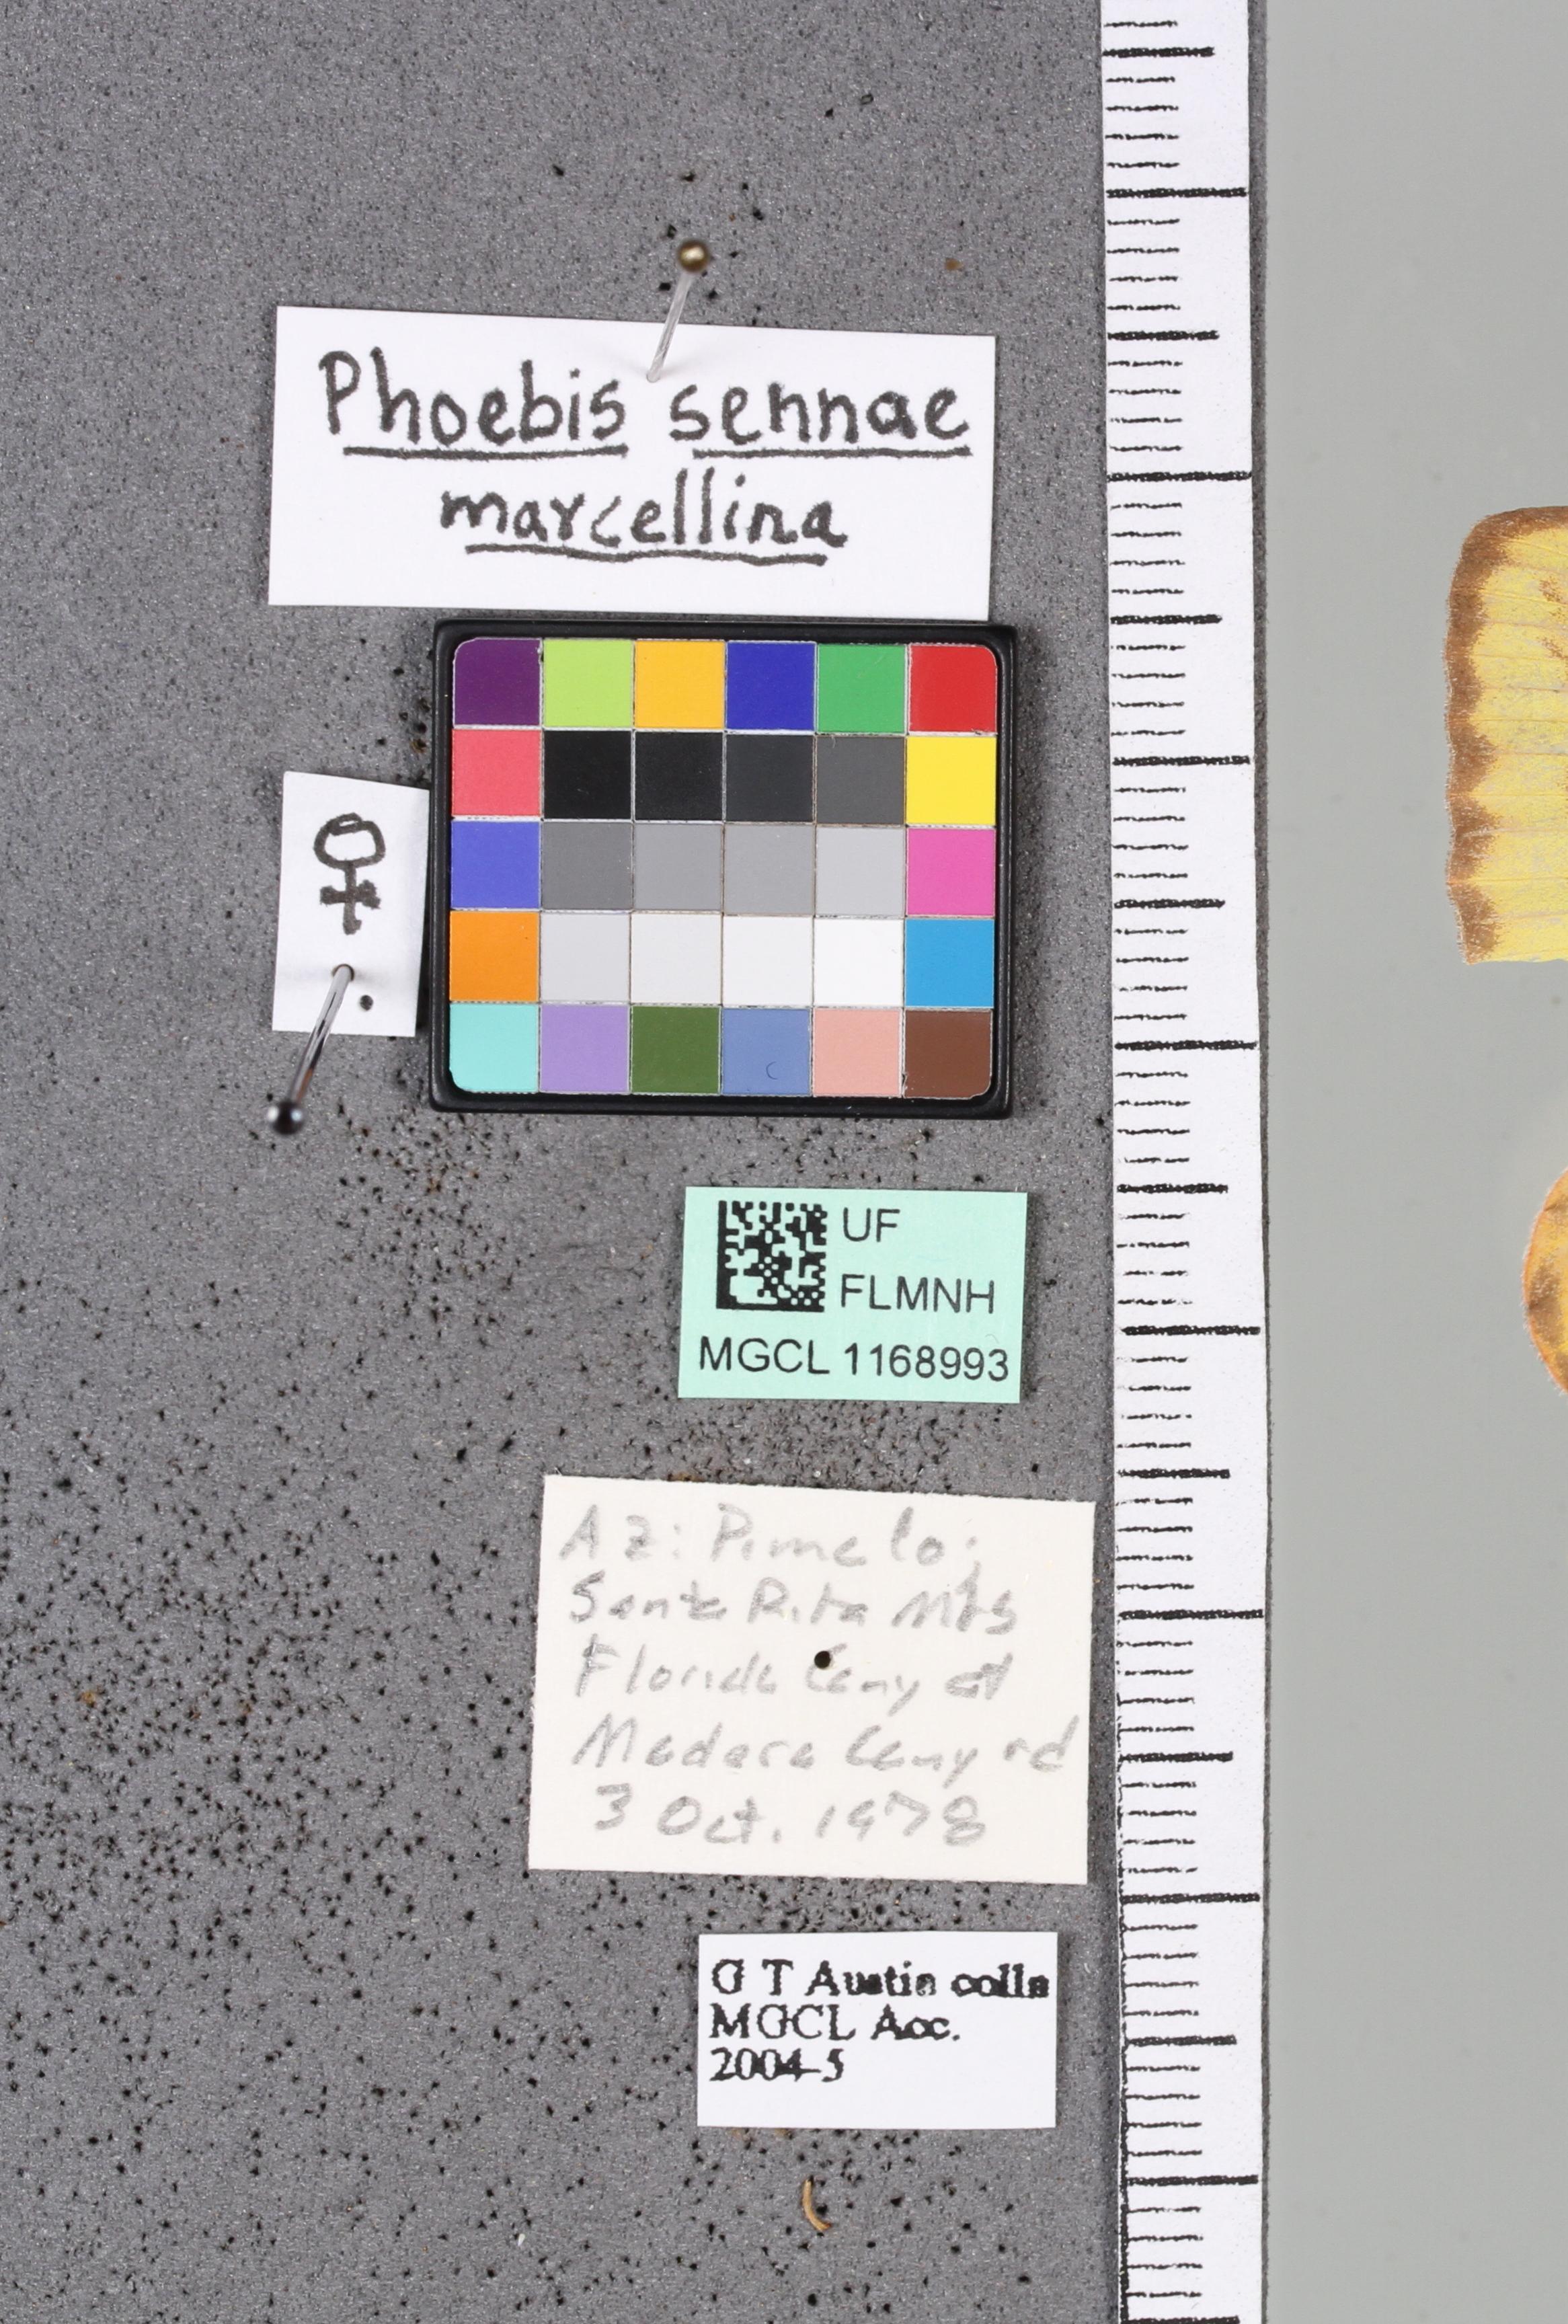 Phoebis sennae
marcellina
♀
UF
FLMNH
MGCL 1168993
AZ: Pima Co;
Santa Rita Mts
Florida Cany at
Madera Cany rd
3 Oct. 1978
G T Austin colln
MGCL Acc.
2004-5